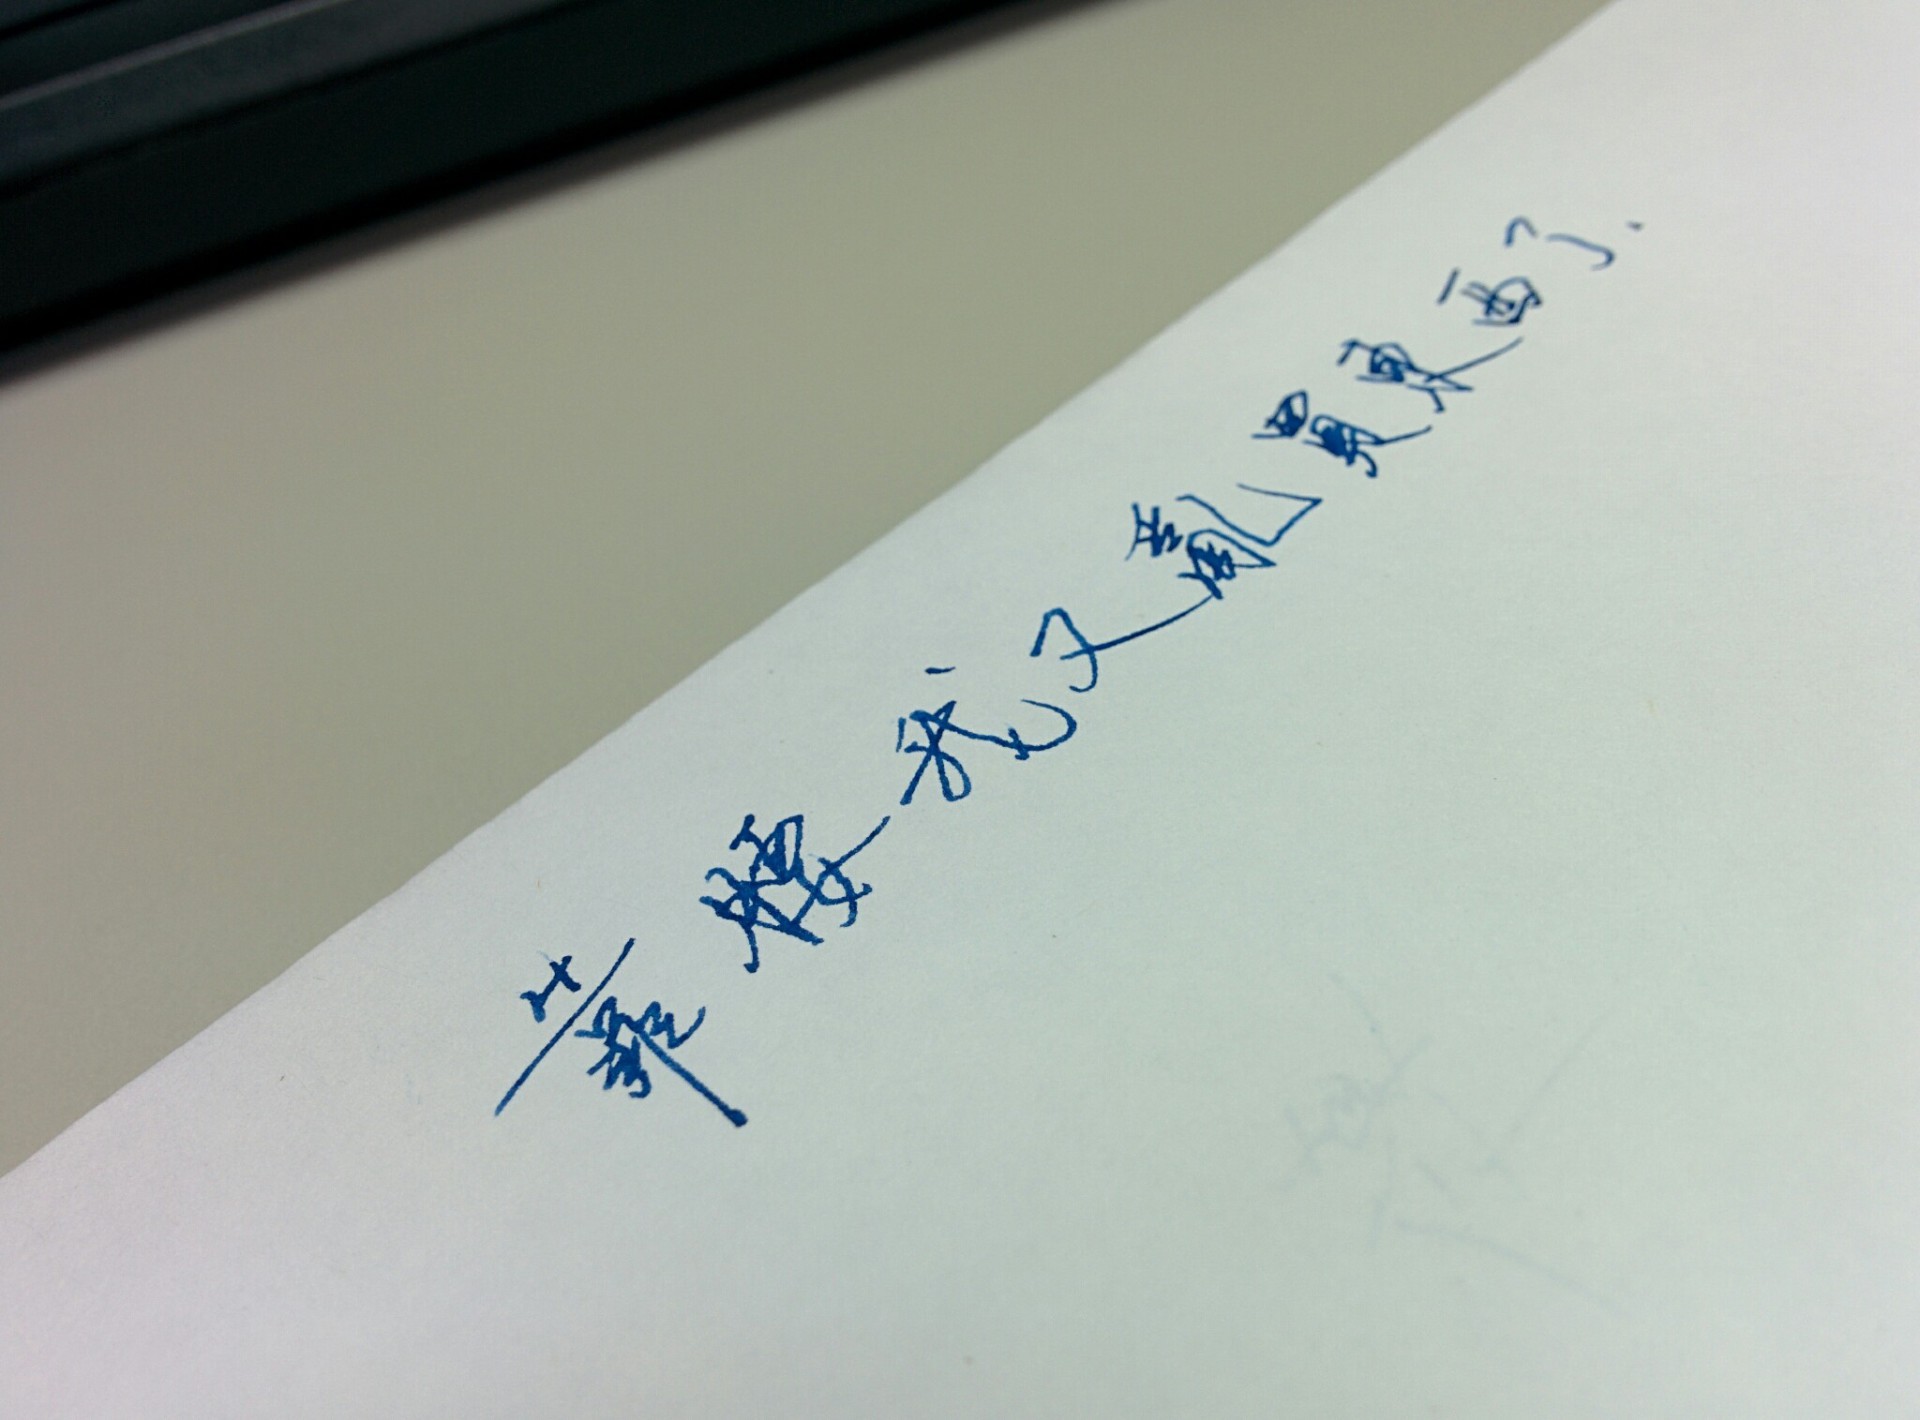 華嫂我又亂買東西了.